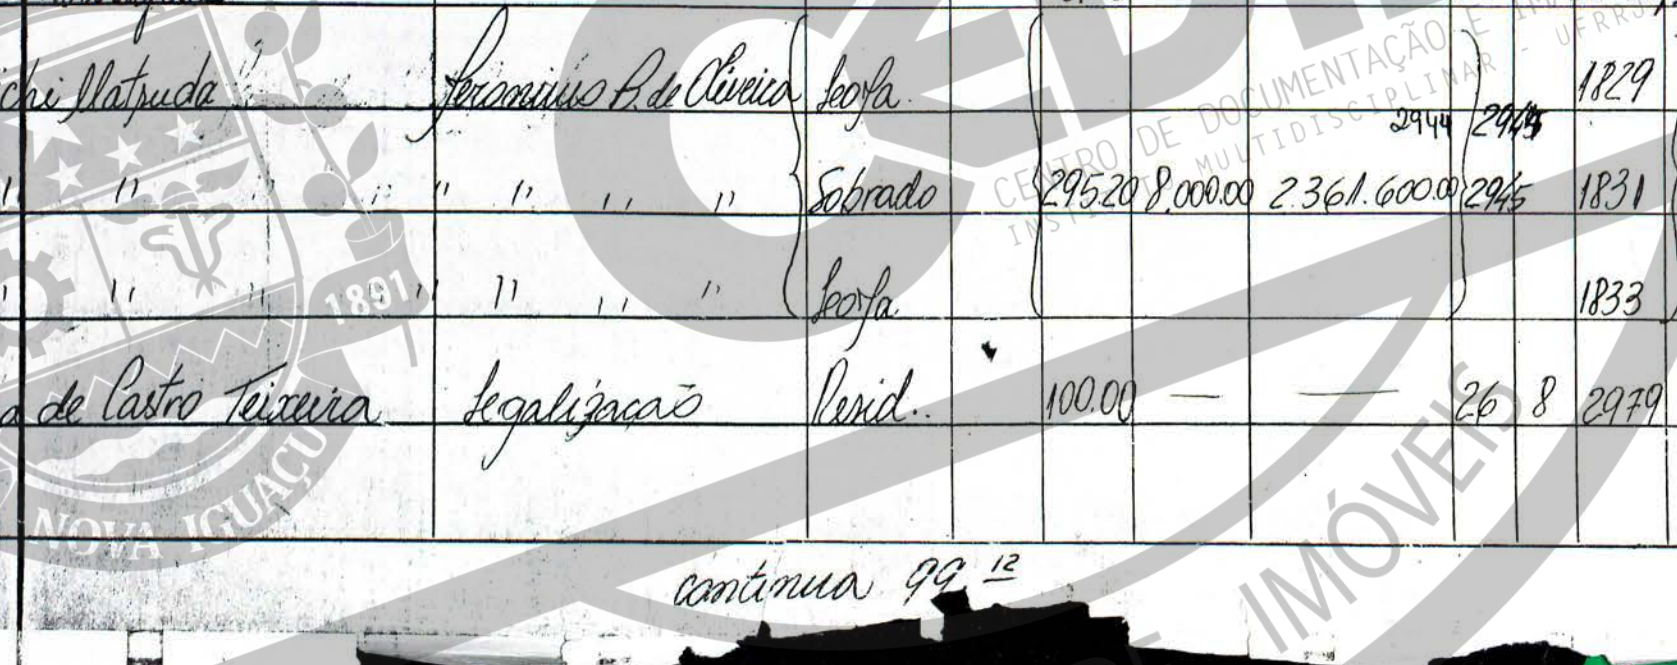 chi Matsuda " Jeronimus B. de Oliveira Leofa 1829
2944 2945
" " " " " " " " Sobrado 295.20 8.000.00 2.361.600.00 2945 1831
" " " " " " " " Leofa 1833
a de Castro Teixeira Legalização Resid.. 100.00 — — 26 8 2979
continua 99 12
CENTRO DE DOCUMENTAÇÃO E
INSTITUTO MULTIDISCIPLINAR - UFRRJ
1891
NOVA IGUAÇU
IMÓVEIS